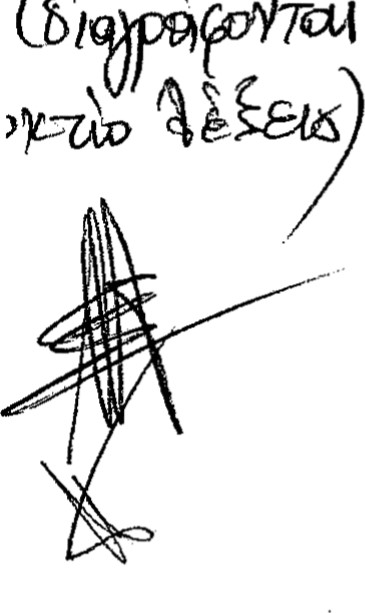 (διαγράφονται
οκτώ λέξεις)